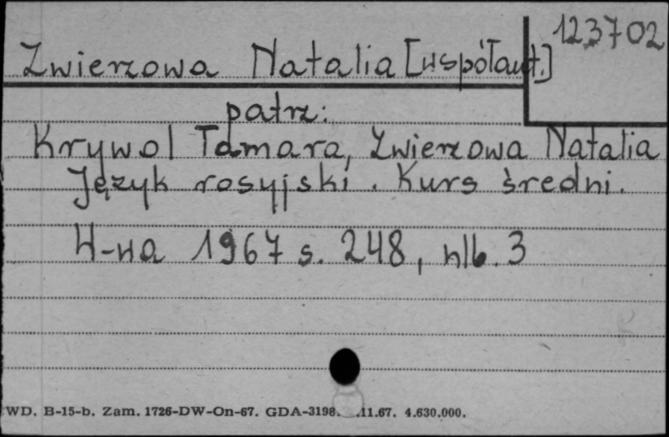 123702
Zwierzowa Natalia [współaut.]
patrz:
Krywol Tamara, Zwierzowa Natalia
Język rosyjski. Kurs średni.
W-wa 1967 s. 248, nlb. 3
WD. B-15-b. Zam. 1726-DW-On-67. GDA-3198. .11.67. 4.630.000.